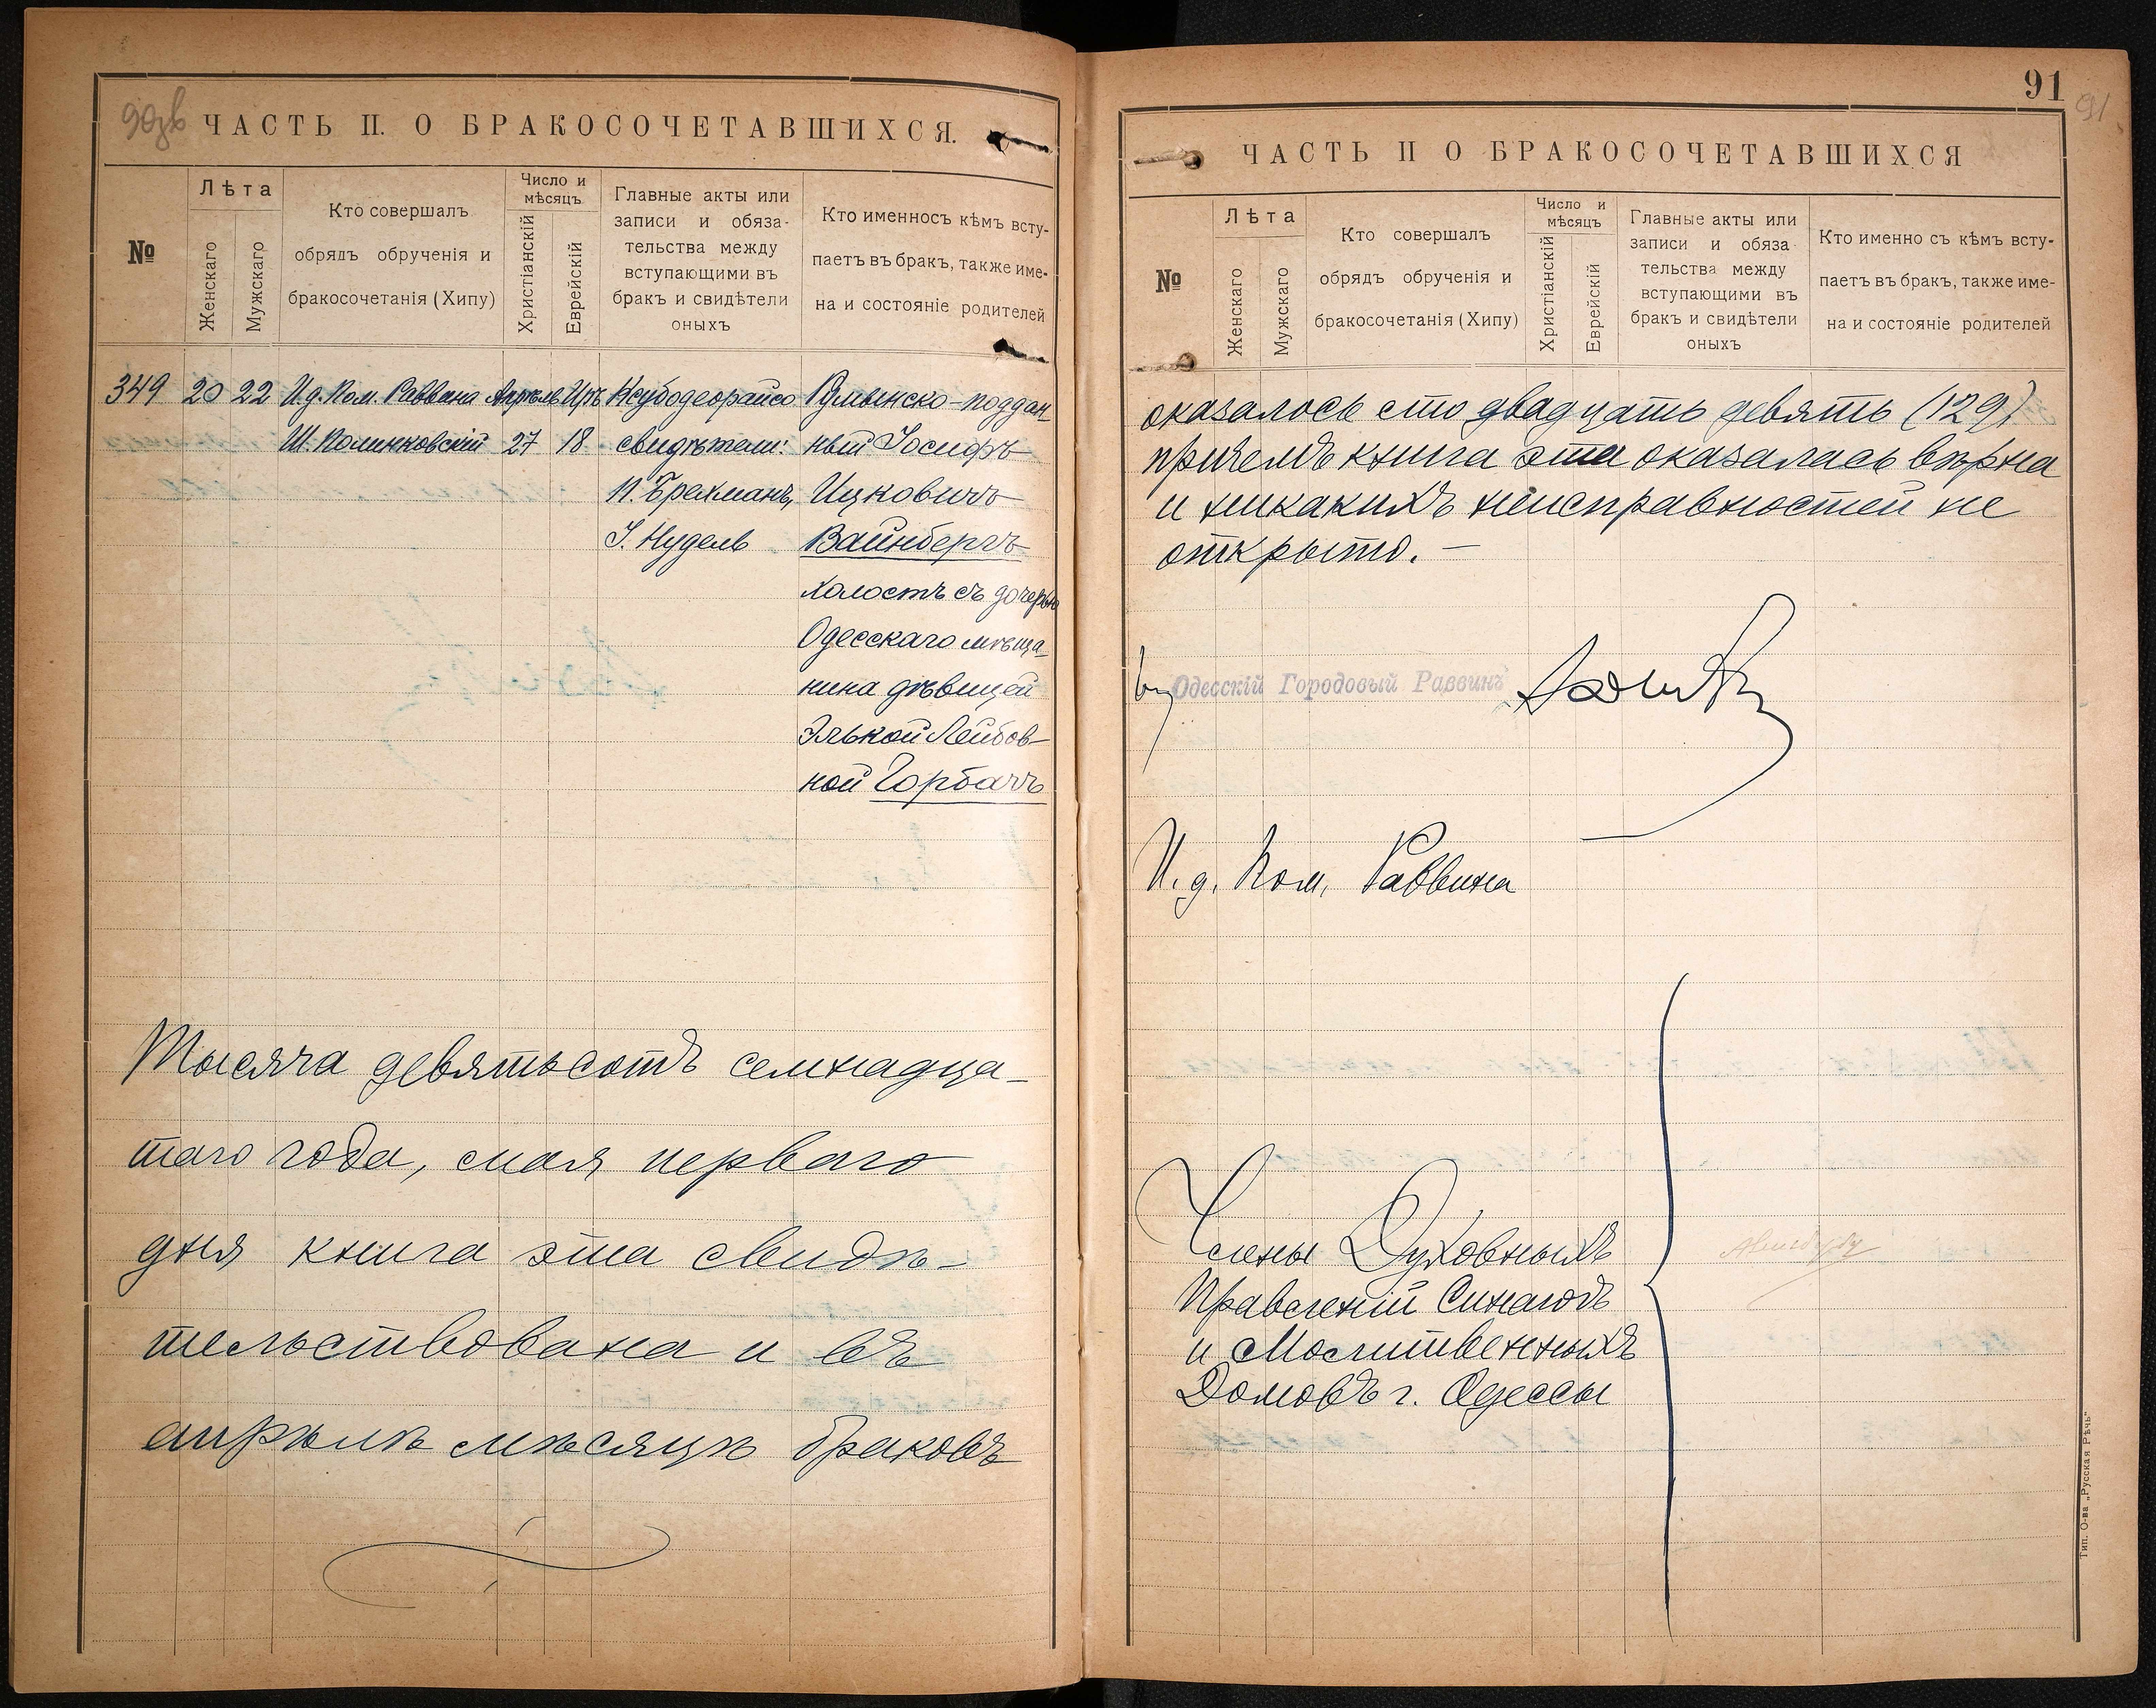 ЧАСТЬ II. О БРАКОСОЧЕТАВШИХСЯ.
№
Лѣта
Женскаго
Мужскаго
Кто совершалъ
обрядъ обрученія и
бракосочетанія (Хипу)
Число и
мѣсяцъ
Христіанскій
Еврейскій
Главные акты или
записи и обяза-
тельства между
вступающими въ
бракъ и свидѣтели
оныхъ
Кто именносъ кѣмъ всту-
паетъ въ бракъ, также име-
на и состояніе родителей
349 20 22 И.д. Пом. Раввина Апрѣль Иръ Ксубодеорайсо Румынско-поддан
Ш. Полинковскій 27 18 свидѣтели: ный Іосифъ
И. Брехманъ, Ицковичъ
І. Нудель Вайнбергъ
холостъ съ дочерью
Одесскаго мѣща-
нина дѣвицей
Элькой Лейбов-
ной Горбачъ
Тысяча девятьсотъ семнадца-
таго года, мая перваго
дня книга эта свидѣ-
тельствована и въ
апрѣлѣ мѣсяцѣ браковъ
91
91
ЧАСТЬ II О БРАКОСОЧЕТАВШИХСЯ
№
Лѣта
Женскаго
Мужскаго
Кто совершалъ
обрядъ обрученія и
бракосочетанія (Хипу)
Число и
мѣсяцъ
Христіанскій
Еврейскій
Главные акты или
записи и обяза
тельства между
вступающими въ
бракъ и свидѣтели
оныхъ
Кто именно съ кѣмъ всту-
паетъ въ бракъ, также име-
на и состояніе родителей
оказалось сто двадцать девять (129)
причемъ книга эта оказалась вѣрна
и никакихъ неисправностей не
открыто. —
Одесскій Городовый Раввинъ
И. д. Пом. Раввина
Члены Духовныхъ
Правленій Синагогъ
и Молитвенныхъ
Домовъ г. Одессы
Тип. О-ва „Русская Рѣчь"